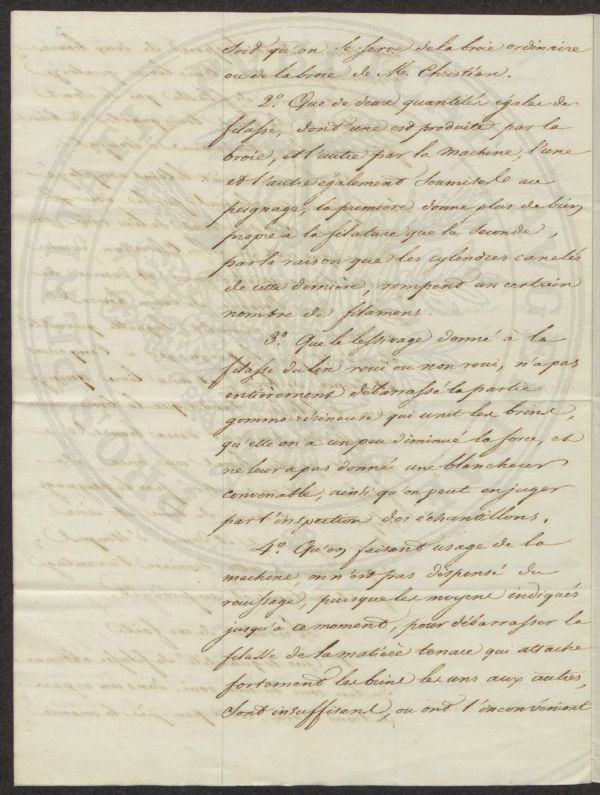 soit qu'on se serve de la broie ordinaire
ou de la broie de M. Christian.
2.º Que de deux quantités égales de
filasse, dont une est produite par la
broie, et l'autre par la machine, l'une
et l'autre également soumises au
peignage, la première donne plus de bien
propre à la filature que la seconde,
par la raison que les cylindres canelés
de cette dernière, rompent un certain
nombre de filamens.
3.º Que le lessivage donné à la
filasse du lin roui ou non roui, n'a pas
entièrement débarrassé la partie
gommo-résineuse qui unit les brins,
qu'elle en a un peu diminué la force, et
ne leur a pas donné une blancheur
convenable, ainsi qu'on peut en juger
par l'inspection des échantillons.
4.º Qu'en faisant usage de la
machine, on n'est pas dispensé du
rouissage, puisque les moyens indiqués
jusqu'à ce moment, pour débarrasser la
filasse de la matière tenace qui attache
fortement les brins les uns aux autres,
sont insuffisans, ou ont l'inconvénient